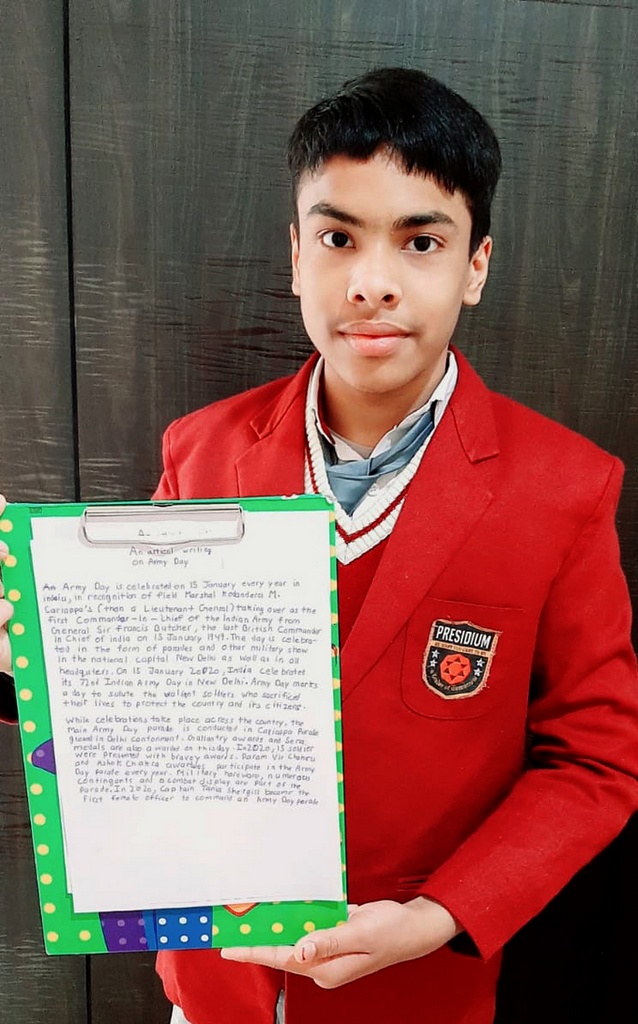 An articel writing
on Army Day
An Army Day is celebrated on 15 January every year in
india, in recognition of field Marshal Kodandera M.
Cariappa's (then a Lieutenant General) taking over as the
first Commander-In-Chief of the Indian Army from
General Sir Francis Butcher, the last British Commander
In Chief of india on 15 January 1949. The day is celebra-
ted in the form of parades and other military show
in the national capital New Delhi as well as in all
headquters. On 15 January 2020, India celebrated
its 72nd Indian Army Day in New Delhi. Army Day marks
a day to salute the valient soltiers who sacrificed
their lives to protect the country and its citizens.
While celebrations take place across the country, the
Main Army Day parade is conducted in Cariappa Parade
ground in Delhi cantonment. Gallantry awards and Sena
medals are also awarded on this day. In 2020, 15 soldier
were presented with bravey awards. Param Vir Chakra
and Ashok Chakra awardees participate in the Army
Day Parade every year. Military hardware, numerous
contingents and a combat display are part of the
Parade. In 2020, Captain Tania Shergill became the
First female officer to command an Army Day parade
PRESIDIUM